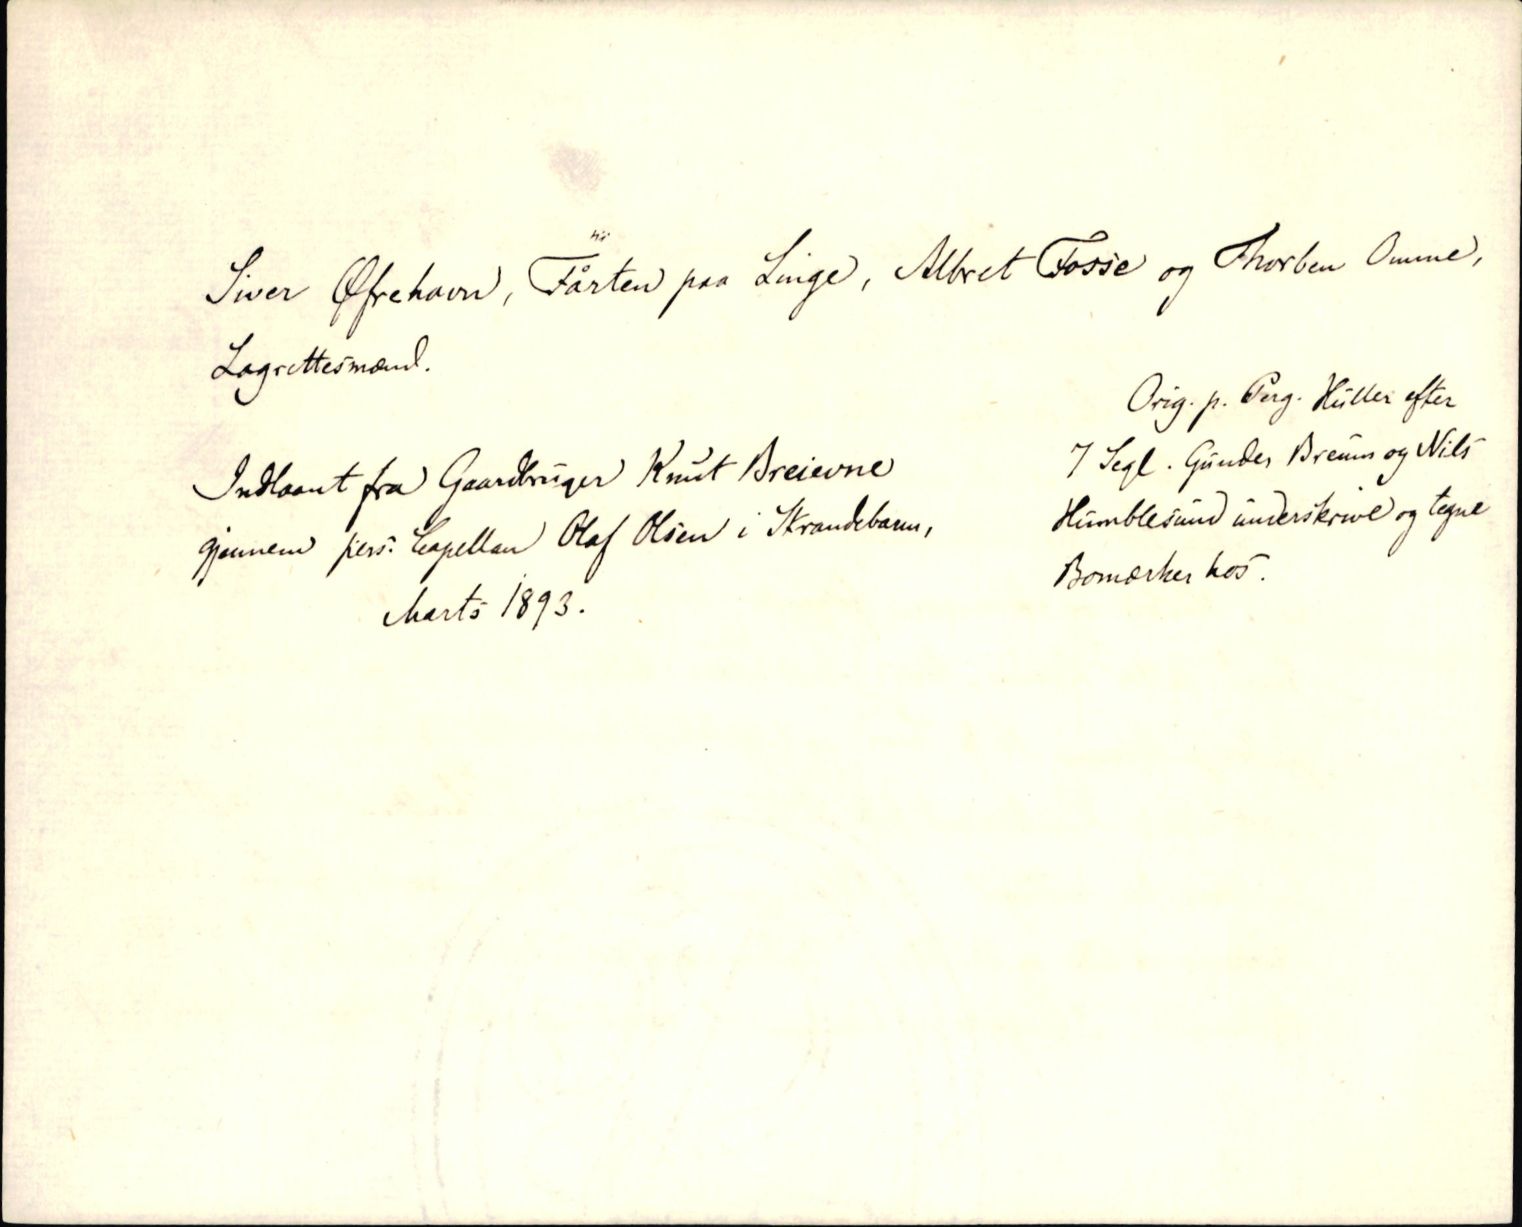 Siver Øfrehavn, Tårten paa Linge, Albret Fosse og Thorben Omme,
Lagrettesmænd.
Orig. p. Perg. Huller efter
7 Segl. Gunder Breum og Nils
Humblesund underskrive og tegne
Bomærker hos.
Indlaant fra Gaardbruger Knut Breievne
gjennem pers. Capellan Olaf Olsen i Strandebarm,
Marts 1893.